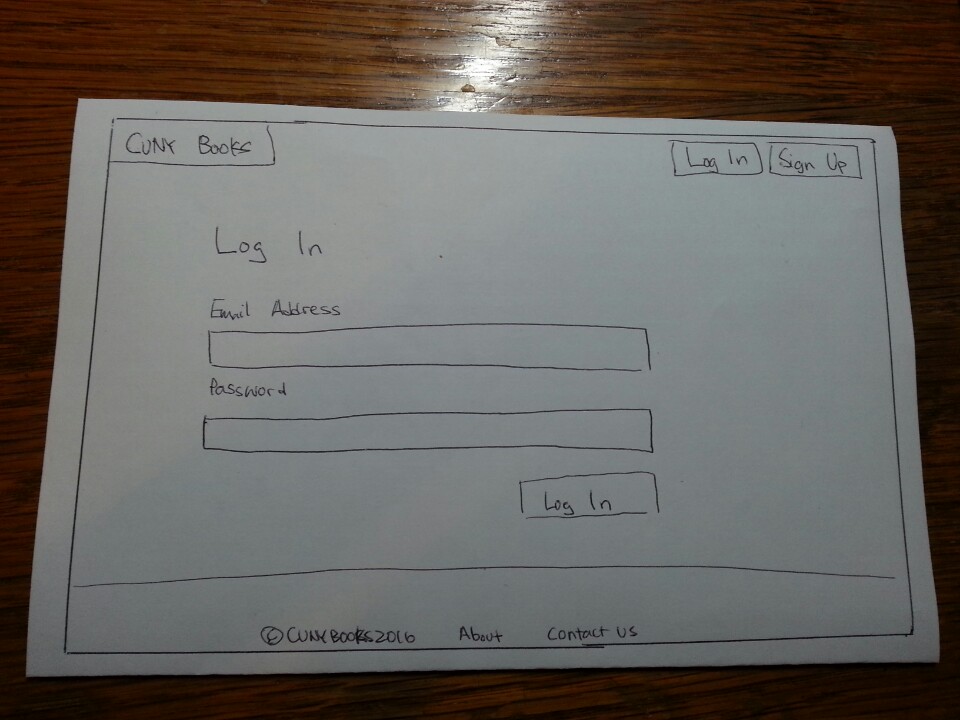 CUNY Books
Log In Sign Up
Log In
Email Address
Password
Log In
© CUNYBOOKS2016 About Contact Us